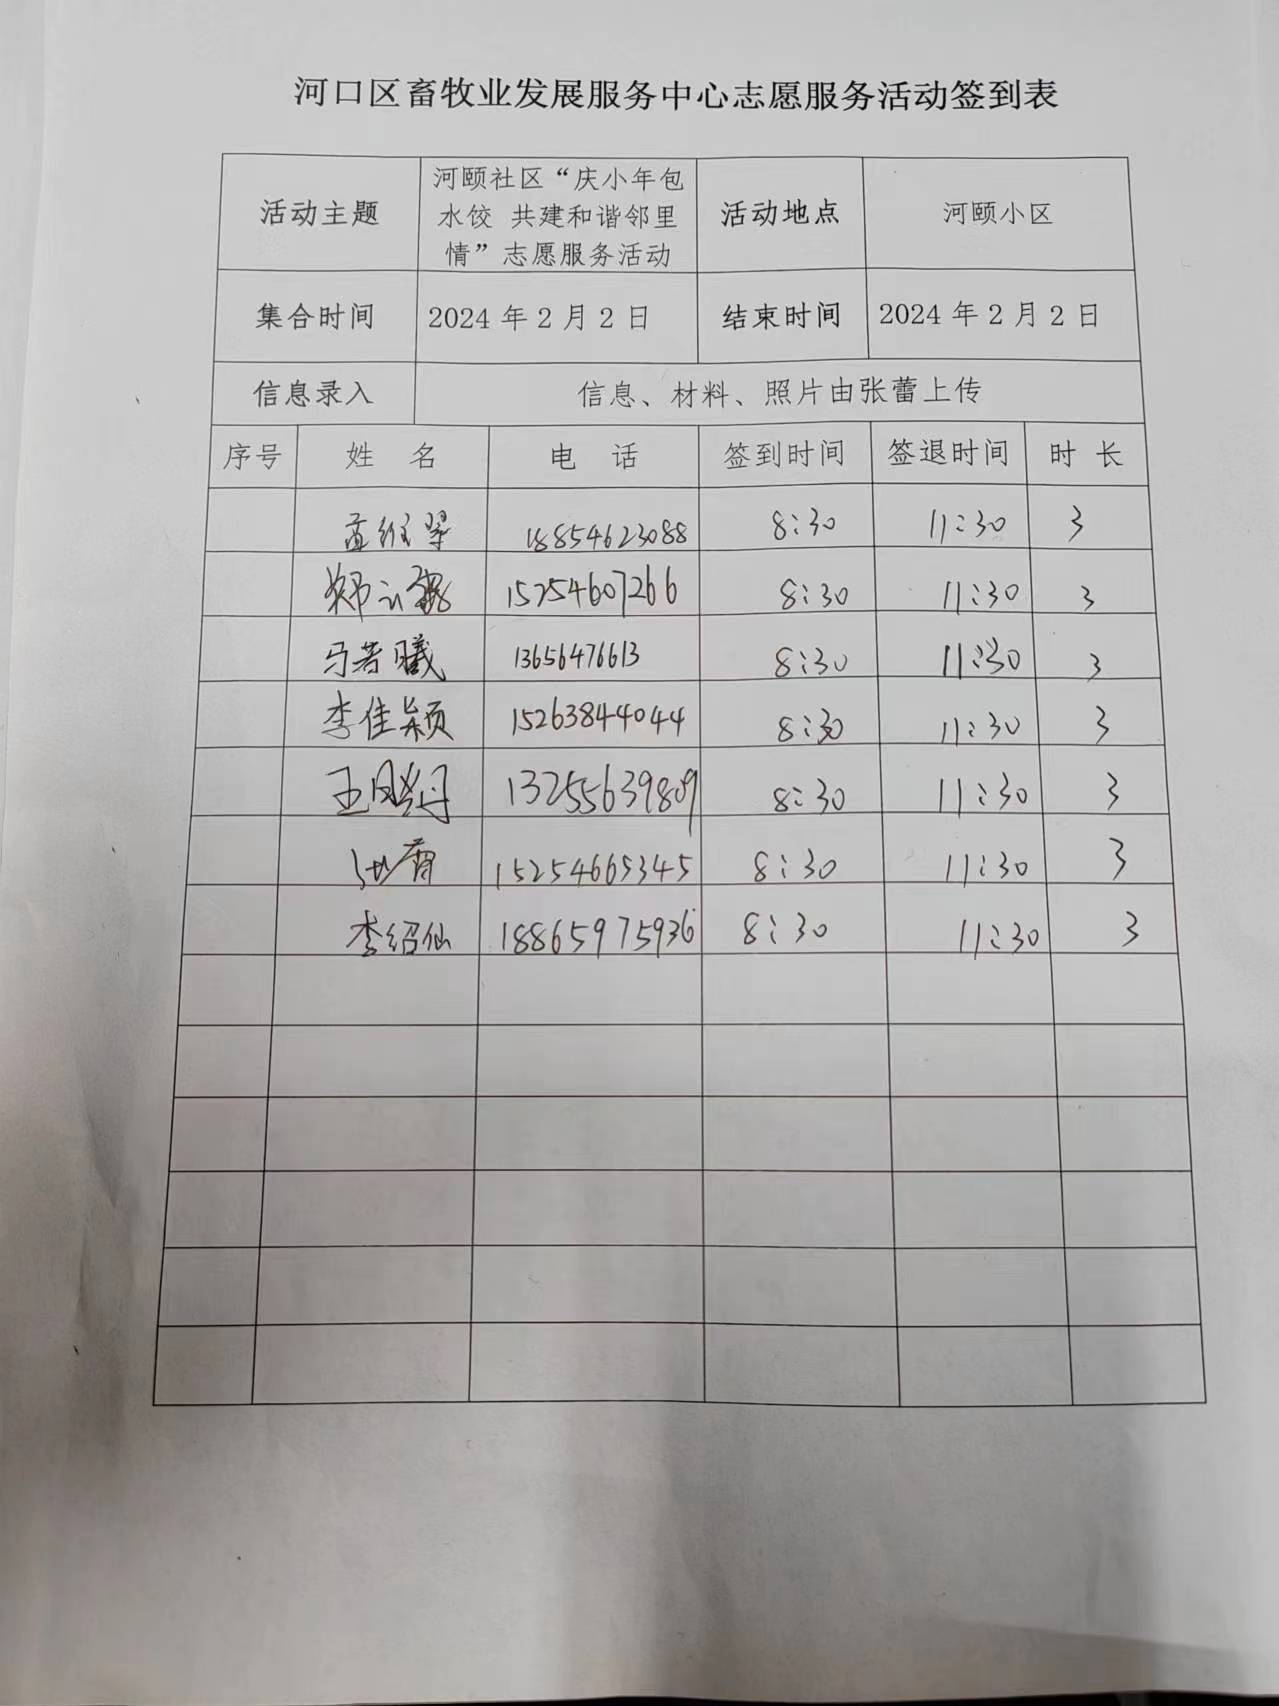 河口区畜牧业发展服务中心志愿服务活动签到表
活动主题 河颐社区“庆小年包水饺 共建和谐邻里情”志愿服务活动 活动地点 河颐小区
集合时间 2024年2月2日 结束时间 2024年2月2日
信息录入 信息、材料、照片由张蕾上传
序号 姓 名 电 话 签到时间 签退时间 时 长
18854623088 8:30 11:30 3
15254607266 8:30 11:30 3
马若曦 13656476613 8:30 11:30 3
李佳颖 15263844044 8:30 11:30 3
13255639809 8:30 11:30 3
15254665345 8:30 11:30 3
李绍仙 18865975936 8:30 11:30 3